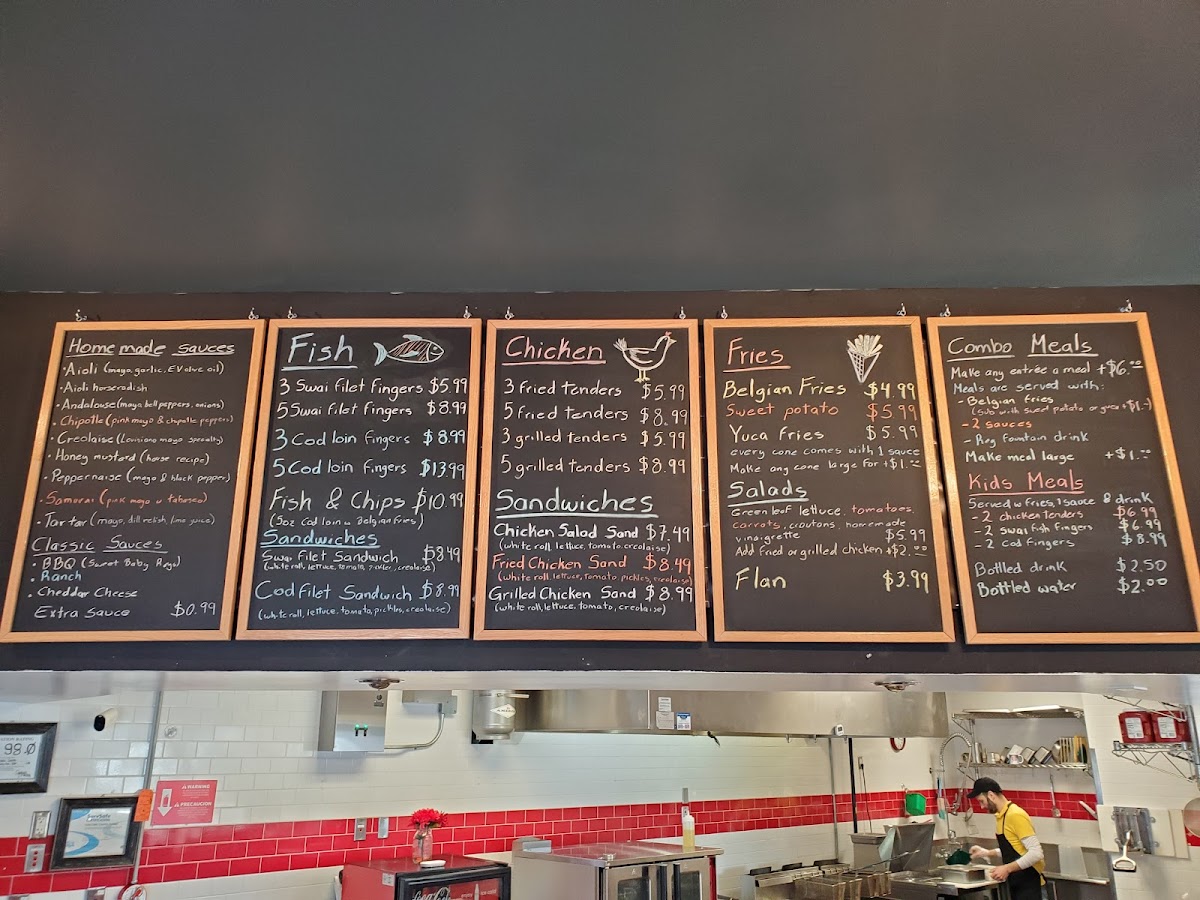 Home made Sauces
• Aioli (mayo, garlic, EV olive oil)
• Aioli horseradish
• Andalouse (mayo bell peppers, onions)
• Chipotle (pink mayo & chipotle peppers)
• Creolaise (Lovisiana mayo specialty)
• Honey mustard (house recipe)
• Peppernaise (mayo & black pepper)
• Samurai (pink mayo w tabasco)
• Tartar (mayo, dill relish, lime juice)
Classic Sauces
• BBQ (Sweet Baby Rays)
• Ranch
• Cheddar Cheese
Extra Sauce $0.99
Fish
3 Swai filet fingers $5.99
5 Swai filet fingers $8.99
3 Cod loin fingers $8.99
5 Cod loin fingers $13.99
Fish & Chips $10.99
(5oz Cod loin w Belgian fries)
Sandwiches
Swai filet Sandwich $8.49
(white roll, lettuce, tomato, pickles, creolaise)
Cod filet Sandwich $8.99
(white roll, lettuce, tomato, pickles, creolaise)
Chicken
3 fried tenders $5.99
5 fried tenders $8.99
3 grilled tenders $5.99
5 grilled tenders $8.99
Sandwiches
Chicken Salad Sand $7.49
(white roll, lettuce, tomato, creolaise)
Fried Chicken Sand $8.49
(white roll, lettuce, tomato, pickles, creolaise)
Grilled Chicken Sand $8.99
(white roll, lettuce, tomato, creolaise)
Fries
Belgian Fries $4.99
Sweet potato $5.99
Yuca fries $5.99
every cone comes with 1 sauce
Make any cone large for +$1.00
Salads
Green leaf lettuce, tomatoes,
carrots, croutons, homemade
vinaigrette $5.99
Add fried or grilled chicken +$2.00
Flan $3.99
Combo Meals
Make any entrée a meal +$6.00
Meals are served with:
- Belgian fries
(sub with sweet potato or yuca +$1.-)
- 2 sauces
- Reg fountain drink
Make meal large +$1.00
Kids Meals
Served w fries, 1 sauce & drink
- 2 chicken tenders $6.99
- 2 swai fish fingers $6.99
- 2 cod fingers $8.99
Bottled drink $2.50
Bottled water $2.00
98.0
WARNING
PRECAUCION
ServSafe